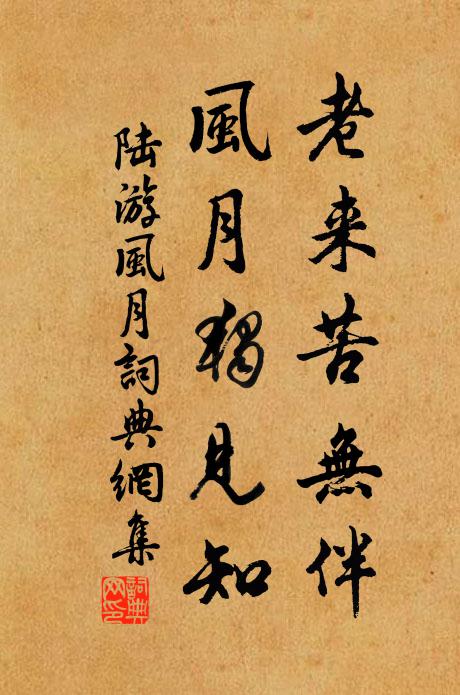 老来苦無伴
風月獨見知
陆游風月詞典網集
詞典
网印